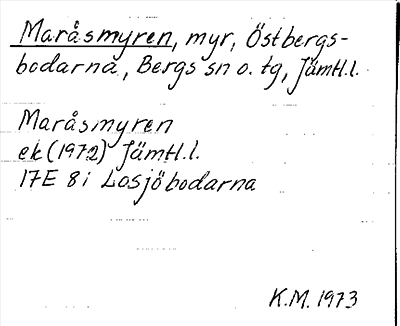 Maråsmyren, myr, Östbergs-
bodarna, Bergs sn o. tg, Jämtl.l.
Maråsmyren
ek (1972) Jämtl.l.
17E 8i Losjöbodarna
K.M. 1973